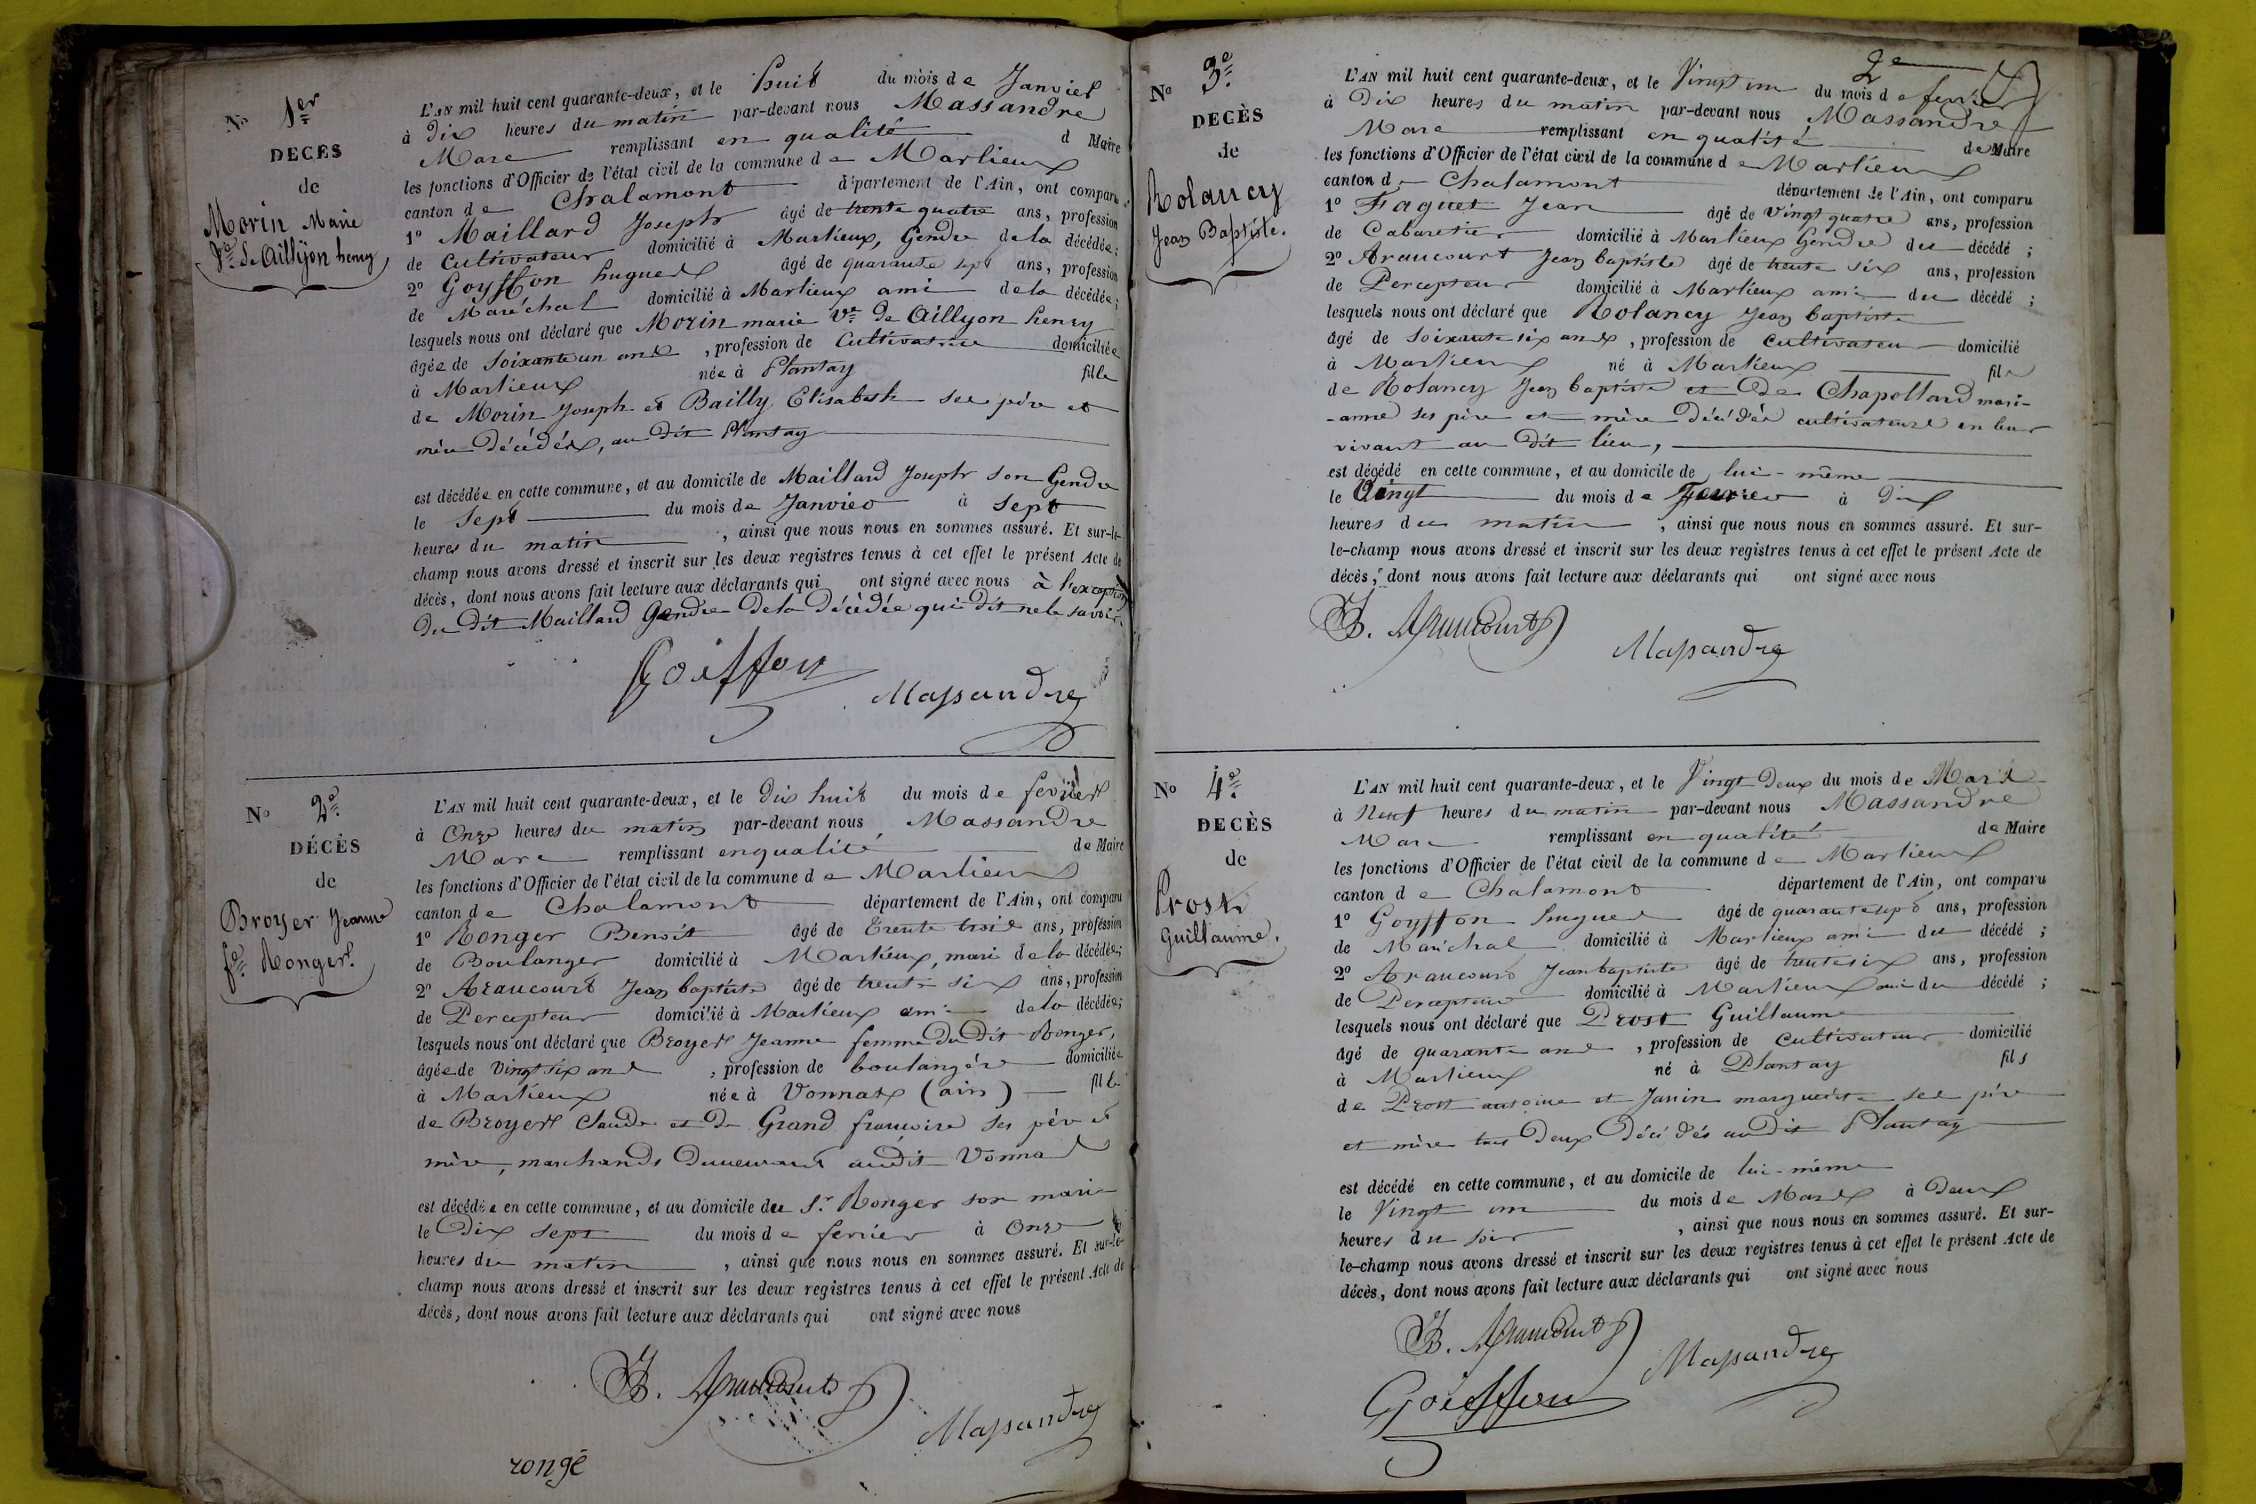 No 1er
DECES
de
Morin Marie
Ve de Aillyon henry
L'AN mil huit cent quarante-deux, et le huit du mois de Janvier
à Dix heures du matin par-devant nous Massandre
Marc remplissant en qualité d Maire
les fonctions d'Officier de l'état civil de la commune de Marlieux
canton de Chalamont département de l'Ain, ont comparu
1o Maillard Joseph âgé de trente quatre ans, profession
de Cultivateur domicilié à Marlieux, Gendre de la décédée;
2o Goyffon hugues âgé de quarante sept ans, profession
de Maréchal domicilié à Marlieux ami de la décédée;
lesquels nous ont déclaré que Morin marie Ve de Aillyon henry
âgée de Soixante un ans, profession de Cultivatrice domiciliée
à Marlieux née à Plantay fille
de Morin Joseph et Bailly Elisabeth ses père et
mère décédés, au dit Plantay
est décédée en cette commune, et au domicile de Maillard Joseph son Gendre
le Sept du mois de Janvier à Sept
heures du matin, ainsi que nous nous en sommes assuré. Et sur-le-
champ nous avons dressé et inscrit sur les deux registres tenus à cet effet le présent Acte de
décès, dont nous avons fait lecture aux déclarants qui ont signé avec nous à l'exception
du dit Maillard Gendre de la décédée qui dit ne le savoir.
Goiffon
Massandre
No 2e
DÉCÈS
de
Broyer Jeanne
fe Ronger
L'AN mil huit cent quarante-deux, et le Dix huit du mois de fevrier
à Onze heures du matin par-devant nous Massandre
Marc remplissant en qualité de Maire
les fonctions d'Officier de l'état civil de la commune de Marlieux
canton de Chalamont département de l'Ain, ont comparu
1o Ronger Benoit âgé de trente trois ans, profession
de Boulanger domicilié à Marlieux, mari de la décédée;
2o Araucourt Jean baptiste âgé de trente six ans, profession
de Percepteur domicilié à Marlieux ami de la décédée;
lesquels nous ont déclaré que Broyer Jeanne femme du dit Ronger,
âgée de vingt six ans, profession de boulangère domiciliée
à Marlieux née à Vonnas (ain) fille
de Broyer Claude et de Grand françoise ses père et
mère, marchands audit Vonnas
est décédée en cette commune, et au domicile du Sr Ronger son mari
le Dix sept du mois de fevrier à Onze
heures du matin, ainsi que nous nous en sommes assuré. Et sur-le-
champ nous avons dressé et inscrit sur les deux registres tenus à cet effet le présent Acte de
décès, dont nous avons fait lecture aux déclarants qui ont signé avec nous
JB. Araucourt
Massandre
rongé
2e
No 3e
DECÈS
de
Rolancy
Jean Baptiste.
L'AN mil huit cent quarante-deux, et le Vingt un du mois de fevrier
à Dix heures du matin par-devant nous Massandre
Marc remplissant en qualité de Maire
les fonctions d'Officier de l'état civil de la commune de Marlieux
canton de Chalamont département de l'Ain, ont comparu
1o Faguet Jean âgé de vingt quatre ans, profession
de Cabaretier domicilié à Marlieux Gendre du décédé;
2o Araucourt Jean baptiste âgé de trente six ans, profession
de Percepteur domicilié à Marlieux ami du décédé;
lesquels nous ont déclaré que Rolancy Jean baptiste
âgé de Soixante six ans, profession de Cultivateur domicilié
à Marlieux né à Marlieux fils
de Rolancy Jean baptiste et de Chapolard mari-
-anne ses père et mère décédés cultivateurs en leur
vivant au dit lieu,
est décédé en cette commune, et au domicile de lui-même
le Vingt du mois de Fevrier à Dix
heures du matin, ainsi que nous nous en sommes assuré. Et sur-
le-champ nous avons dressé et inscrit sur les deux registres tenus à cet effet le présent Acte de
décès, dont nous avons fait lecture aux déclarants qui ont signé avec nous
JB. Araucourt
Massandre
No 4e
DECÈS
de
Prost
Guillaume.
L'AN mil huit cent quarante-deux, et le Vingt Deux du mois de Mars
à Neuf heures du matin par-devant nous Massandre
Marc remplissant en qualité de Maire
les fonctions d'Officier de l'état civil de la commune de Marlieux
canton de Chalamont département de l'Ain, ont comparu
1o Goyffon hugues âgé de quarante sept ans, profession
de Maréchal domicilié à Marlieux ami du décédé;
2o Araucourt Jean baptiste âgé de trente six ans, profession
de Percepteur domicilié à Marlieux ami du décédé;
lesquels nous ont déclaré que Prost Guillaume
âgé de quarante ans, profession de Cultivateur domicilié
à Marlieux né à Plantay fils
de Prost antoine et Janin marguerite ses père
et mère tous deux décédés au dit Plantay
est décédé en cette commune, et au domicile de lui-même
le Vingt un du mois de Mars à Deux
heures du soir, ainsi que nous nous en sommes assuré. Et sur-
le-champ nous avons dressé et inscrit sur les deux registres tenus à cet effet le présent Acte de
décès, dont nous avons fait lecture aux déclarants qui ont signé avec nous
JB. Araucourt
Massandre
Goiffon